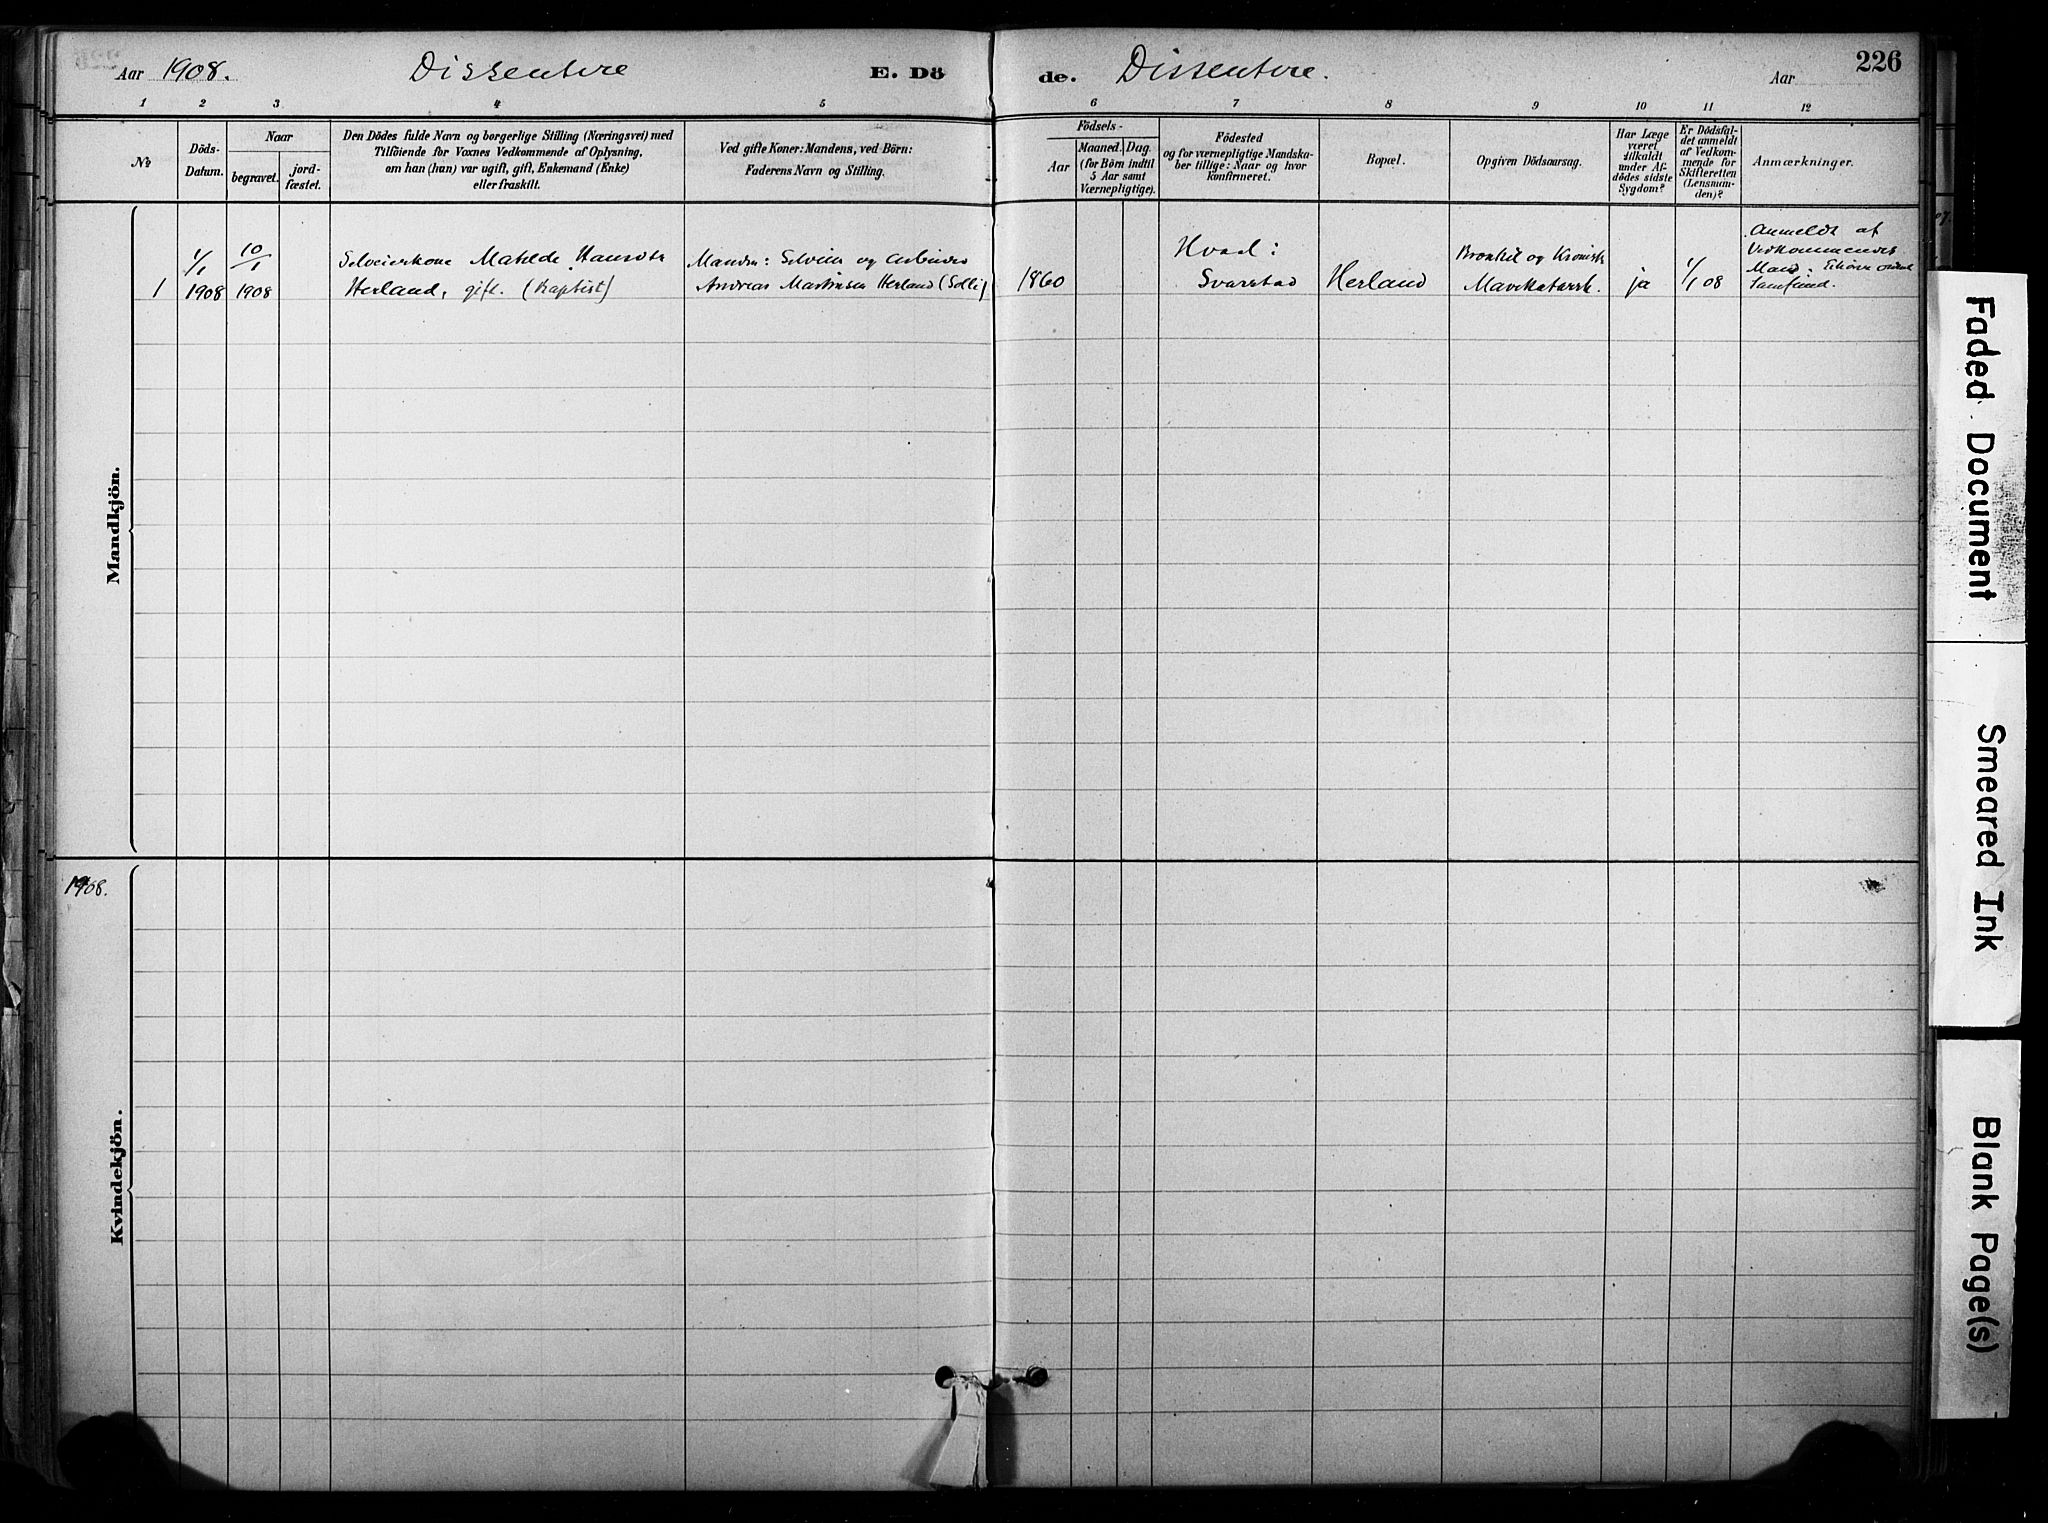 Aar 1908. Dissentere E. Dö
de. Dissentere. Aar 226
1 2 3 4 5
6 7 8 9 10 11 12
No
Döds-
Datum.
Naar
begravet.
jord-
fæstet.
Den Dödes fulde Navn og borgerlige Stilling (Næringsvei) med
Tilföiende for Voxnes Vedkommende af Oplysning,
om han (hun) var ugift, gift, Enkemand (Enke)
eller fraskilt.
Ved gifte Koner: Mandens, ved Börn:
Faderens Navn og Stilling.
Födsels-
Aar
Maaned. Dag.
(for Börn indtil
5 Aar samt
Værnepligtige).
Födested
og for værnepligtige Mandska-
ber tillige: Naar og hvor
konfirmeret.
Bopæl.
Opgiven Dödsaarsag.
Har Læge
været
tilkaldt
under Af-
dödes sidste
Sygdom?
Er Dödsfal-
det anmeldt
af Vedkom-
mende for
Skifteretten
(Lensman-
den)?
Anmærkninger.
Mandkjön.
1
1/1
1908
10/1
1908
Selveierkone Matilde Hansdtr
Herland, gift. (Baptist)
Manden: Selveier og Arbeider
Andreas Martinsen Herland (Solli)
1860
Hvad:
Svarstad
Herland
Bronkit og Kronisk
Mavekatarrh.
ja
1/1 08
Anmeldt af
Vedkommendes
Mand:
Samfund.
1908.
Kvindekjön.
Faded Document
Smeared Ink
Blank Page(s)